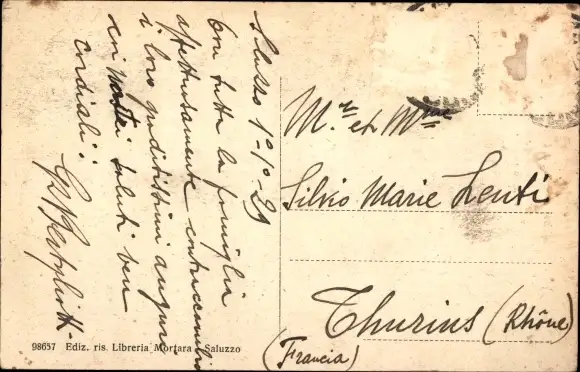 Saluzzo 1°-1°-29
Con tutta la famiglia
affettuosamente contraccambio
i loro graditissimi auguri
coi nostri saluti ben
cordiali:
M.r et Mme
Silvio Marie Lenti
Thurins (Rhône)
(Francia)
98657 Ediz. ris. Libreria Mortara - Saluzzo